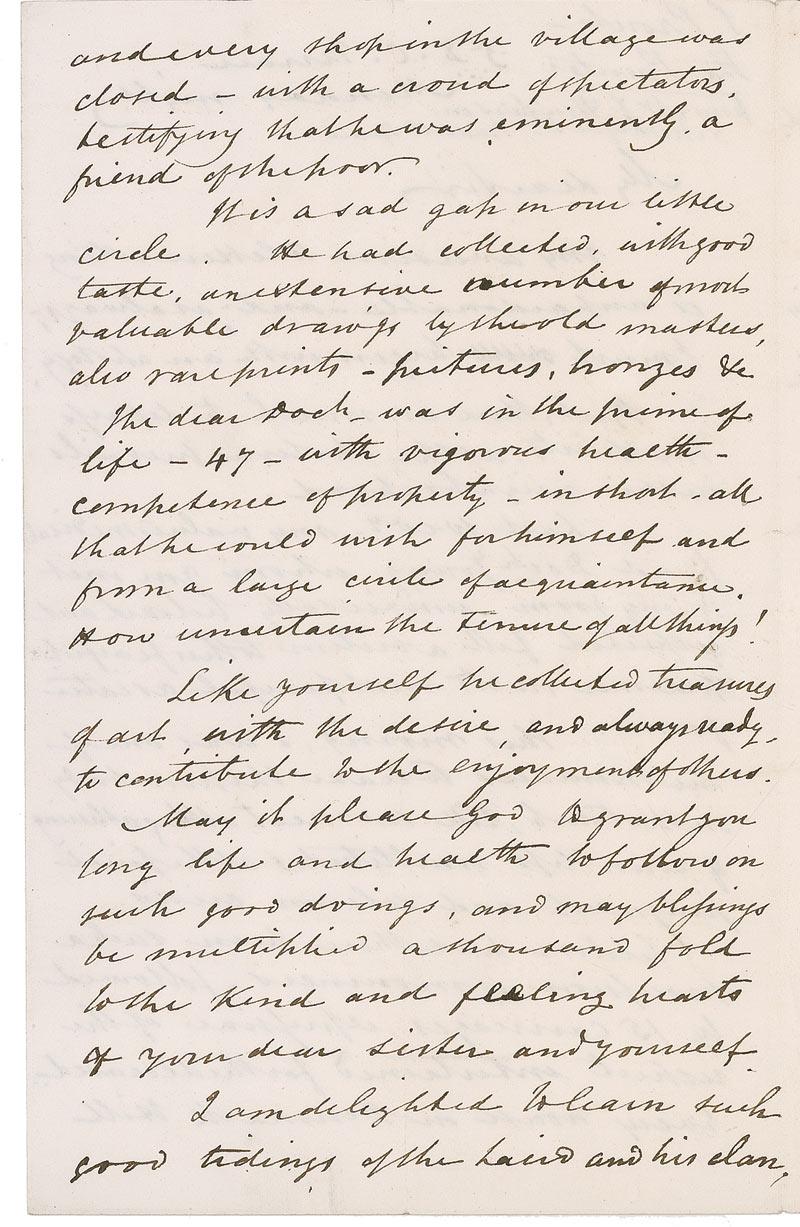 and every shop in the village was
closed – with a crowd of spectators,
testifying that he was eminently, a
friend of the poor.
It is a sad gap in our little
circle. He had collected, with good
taste, an extensive number of most
valuable drawgs by the old masters,
also rare prints – pictures, bronzes &c
The dear Doctr. was in the prime of
life – 47 – with vigorous health –
competence of property – in short – all
that he could wish for himself and
from a large circle of acquaintance.
How uncertain the tenure of all things!
Like yourself he collected treasures
of art, with the desire, and always ready,
to contribute to the enjoyment of others.
May it please God to grant you
long life and health to follow on
such good doings, and may blessings
be multiplied a thousand fold
to the kind and feeling hearts
of your dear sister and yourself
I am delighted to learn such
good tidings of the Laird and his clan,